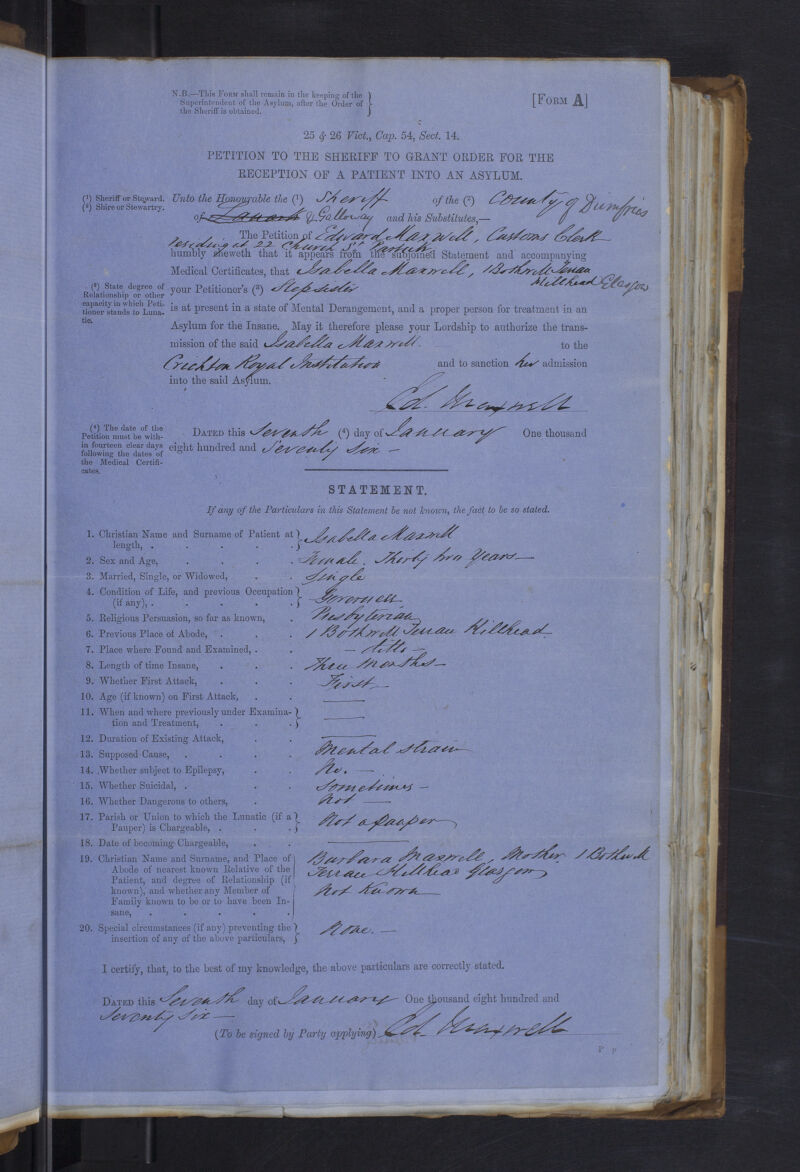 N.B.—This Form shall remain in the keeping of the
Superintendent of the Asylum, after the Order of
the Sheriff is obtained.
[Form A]
25 & 26 Vict., Cap. 54, Sect. 14.
PETITION TO THE SHERIFF TO GRANT ORDER FOR THE
RECEPTION OF A PATIENT INTO AN ASYLUM.
(1) Sheriff or Steward.
(2) Shire or Stewartry.
Unto the Honourable the (1) Sheriff of the (2) County of Dumfries
of Lanark & Galloway and his Substitutes,—
The Petition of Edward Maxwell, Customs Clerk
residing at 22 Church St. Partick
humbly sheweth that it appears from the subjoined Statement and accompanying
Medical Certificates, that Isabella Maxwell, 1 Bothwell Terrace
Hillhead Glasgow
(3) State degree of
Relationship or other
capacity in which Peti-
tioner stands to Luna-
tic.
your Petitioner's (3) Stepsister
is at present in a state of Mental Derangement, and a proper person for treatment in an
Asylum for the Insane. May it therefore please your Lordship to authorize the trans-
mission of the said Isabella Maxwell to the
Crichton Royal Institution and to sanction her admission
into the said Asylum.
Ed. Maxwell
(4) The date of the
Petition must be with-
in fourteen clear days
following the dates of
the Medical Certifi-
cates.
Dated this Seventh (4) day of January One thousand
eight hundred and Seventy Six —
STATEMENT.
If any of the Particulars in this Statement be not known, the fact to be so stated.
1. Christian Name and Surname of Patient at
length, . Isabella Maxwell
2. Sex and Age, Female, Thirty two years —
3. Married, Single, or Widowed, Single
4. Condition of Life, and previous Occupation
(if any), . Governess
5. Religious Persuasion, so far as known, Presbyterian
6. Previous Place of Abode, 1 Bothwell Terrace Hillhead
7. Place where Found and Examined, — ditto —
8. Length of time Insane, Three Months —
9. Whether First Attack, First —
10. Age (if known) on First Attack, —
11. When and where previously under Examina-
tion and Treatment, —
12. Duration of Existing Attack, —
13. Supposed Cause, Mental strain
14. Whether subject to Epilepsy, No. —
15. Whether Suicidal, Sometimes —
16. Whether Dangerous to others, Not —
17. Parish or Union to which the Lunatic (if a
Pauper) is Chargeable, Not a pauper
18. Date of becoming Chargeable, —
19. Christian Name and Surname, and Place of
Abode of nearest known Relative of the
Patient, and degree of Relationship (if
known), and whether any Member of
Family known to be or to have been In-
sane,
Barbara Maxwell, Mother 1 Bothwell
Terrace Hillhead Glasgow
Not Known
20. Special circumstances (if any) preventing the
insertion of any of the above particulars, None. —
I certify, that, to the best of my knowledge, the above particulars are correctly stated.
Dated this Seventh day of January One thousand eight hundred and
Seventy Six —
(To be signed by Party applying) Ed. Maxwell
P p